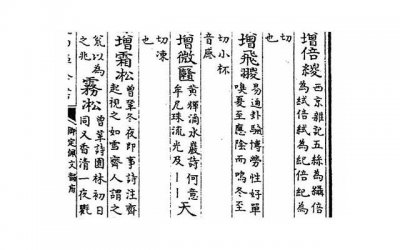 增倍緵 西京雜記五絲為䌰倍
為緎倍緎為紀倍紀為
切
增飛翪 易通卦驗博勞性好單
嗅夏至應陰而鳴冬至
切小杯
音
增微 滴水巖詩何意
牟尼珠流光及——天
切凍
也
增霜凇 曾鞏冬夜即事詩注齊
起視之如雪齊人謂之
瓮以為
之兆
霧凇 曾鞏詩園林初日
同又香清一夜氈
御定佩文韻府